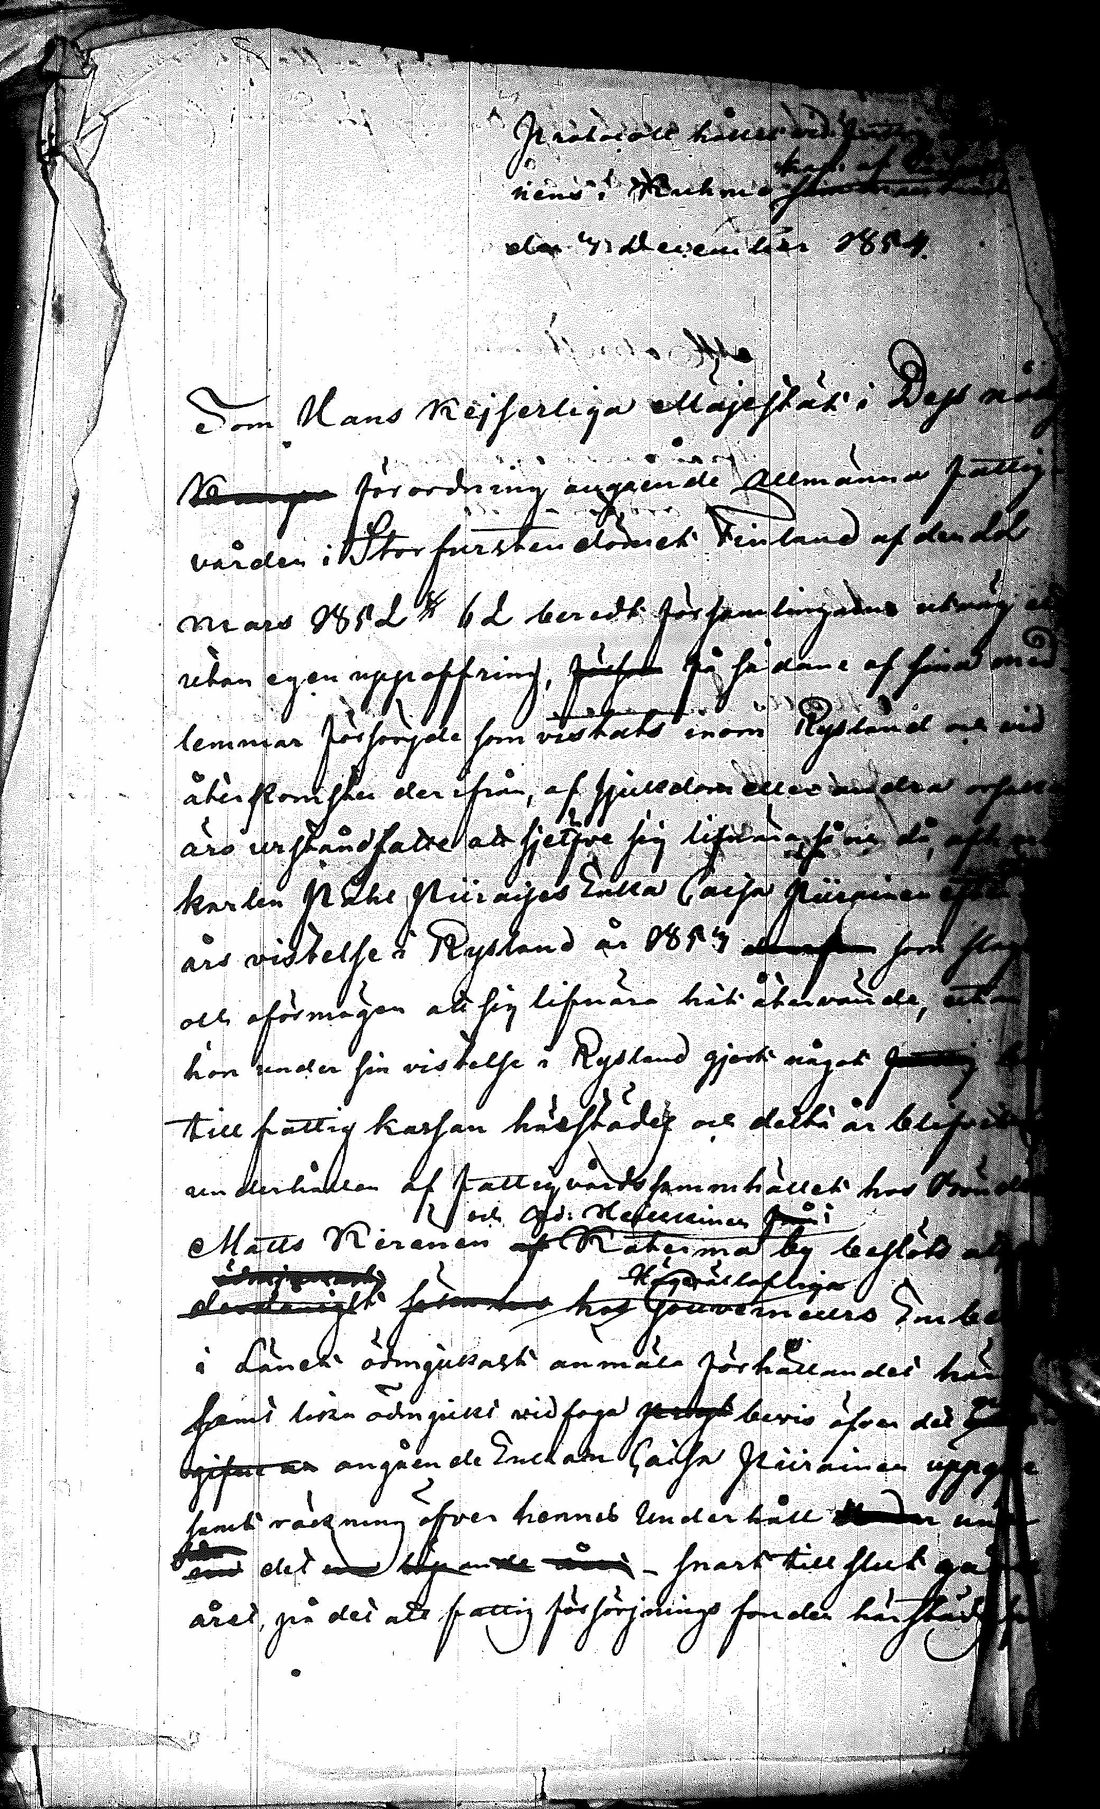 Protocoll hållet vid fattig
kap: af
nens i Kuhmo
den 7 December 1854.
Som Hans Kejserliga Majestät i Dess nåd
förordning angående Allmänna fattig
vården i Storfurstendömet Finland af den 22
mars 1852 § 62 beredt församlingarne utväg at
utan egen uppoffring, få sådane af sina med
lemmar försörjde som vistats inom Ryssland och vid
återkomsten derifrån, af sjukdom eller andra orsaker
äro urståndsatte att sjelfve sig lifnära, så
karlen Påhl Piiraises Enka Caisa Piirainen efter
års vistelse i Ryssland år 1853 som
och oförmögen att sig lifnära hit återvände, utan
hon under sin vistelse i Ryssland gjort något
till fattig kassan härstädes och detta år blifvit
underhållen af fattigvårdssammhället hos Bönder
och And: Heikkinen från
Matts Keränen Katerma by beslöts at
ödmjukast Högvällofliga
hos Gouverneurs Embe
i Länet ödmjukast anmäla förhållandet här
samt likn ödmjukt vidfoga bevis öfver det
angående Enkan Caisa Piirainen uppg
samt räkning öfver hennes Underhåll und
det löpande snart till slut gå
året, på det att fattig försörjnings fonden härstädes